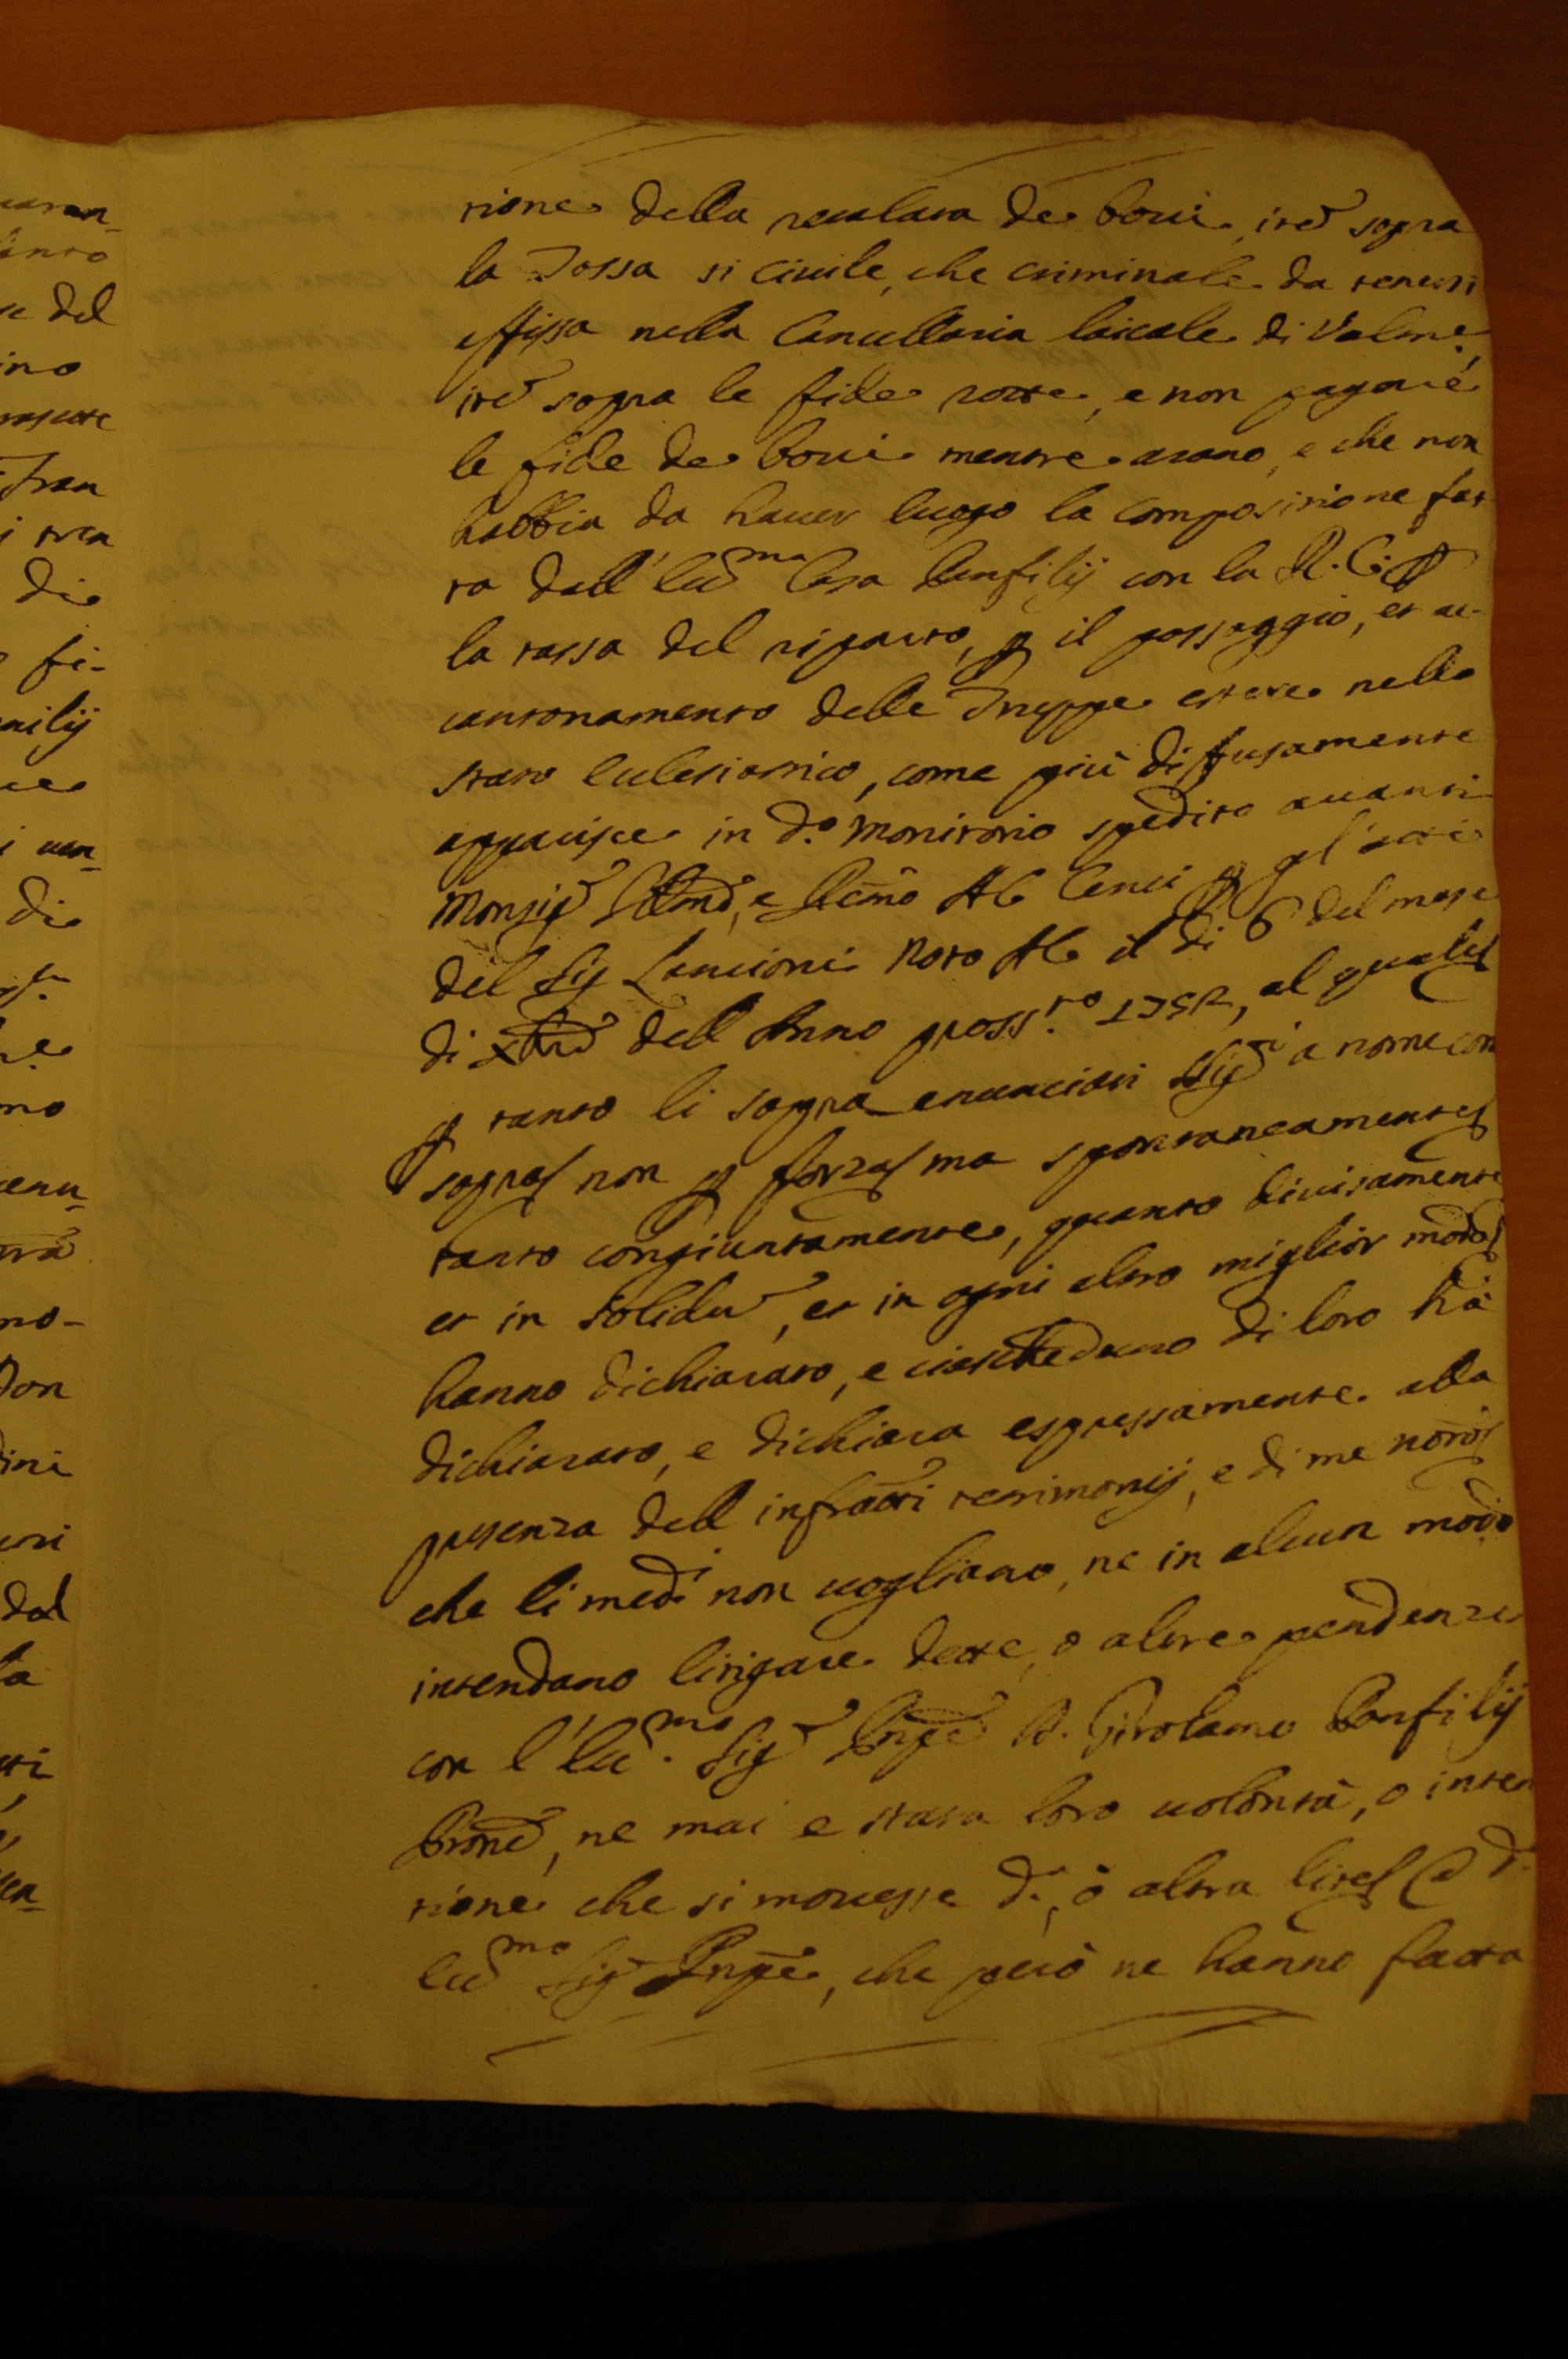 zione della recolara de boui, itē sopra
la Tassa si ciuile, che criminale da tenersi
affissa nella Cancellaria laicale di Valm.e
itē sopra le fide rotte, e non pagarsi
le fide de boui mentre arano, e che non
habbia da hauer luogo la composizione fat
ta dall' Ecc.ma Casa Panfilij con la R. C. p
la tassa del riparto, p il passaggio, et ac-
cantonamento delle Truppe estere nello
stato Eclesiastico, come più diffusamente
apparisce in d.o Monitorio spedito auanti
Monsig.r e R̃m̃o AC Cenci p gl'atti
del Sig Lancioni Noto AC il dì 6 del mese
di Xbrē dell Anno pross.to 1752, al quale
p tanto li sopra enunciati Sig.ri a nome con
sopra non p forza ma spontaneamente
tanto congiuntamente, quanto diuisamente
et in solidũ, et in ogni altro miglior modo
hanno dichiarato, e ciascheduno di loro hà
dichiarato, e dichiara espressamente alla
presenza dell infratti testimonij, e di me noto
che li med.i non uogliano, ne in alcun modo
intendano litigare dette, o altre pendenze
con l' Ecc.mo Sig.r Pnpe D. Girolamo Panfilij
Prone, ne mai e stata loro uolontà, o inten
zione che si mouesse d.a, ò altra lite d.o
Ecc.mo Sig.r Pnpe, che però ne hanno fatta